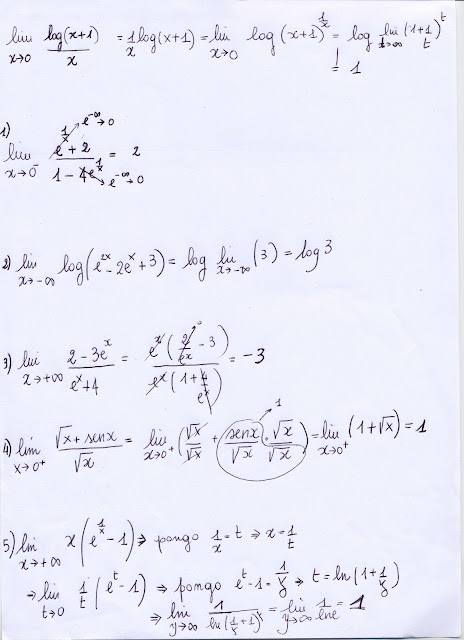 lim x→0 log(x+1)/x = 1/x log(x+1) = lim x→0 log(x+1)^(1/x) = log lim t→∞ (1+1/t)^t
= 1
1) lim x→0⁻ (e^(1/x) + 2)/(1 - 4e^(1/x)) = 2
e^(-∞)→0
e^(-∞)→0
2) lim x→-∞ log(e^(2x) - 2e^x + 3) = log lim x→-∞ (3) = log 3
3) lim x→+∞ (2 - 3e^x)/(e^x + 4) = e^x(2/e^x - 3)/e^x(1 + 4/e^x) = -3
4) lim x→0⁺ (√x + senx)/√x = lim x→0⁺ (√x/√x + senx/√x · √x/√x) = lim x→0⁺ (1+√x) = 1
5) lim x→+∞ x(e^(1/x) - 1) ⇒ pongo 1/x = t ⇒ x = 1/t
⇒ lim t→0 1/t (e^t - 1) ⇒ pongo e^t - 1 = 1/y ⇒ t = ln(1 + 1/y)
⇒ lim y→∞ 1/ln(1/y + 1)^y = lim y→∞ 1/lne = 1